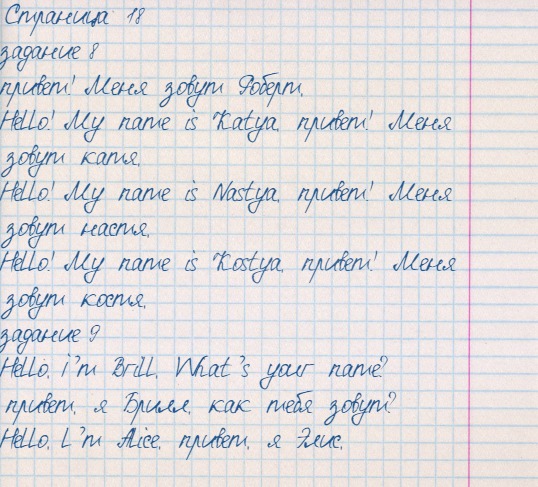 Страница 18
задание 8
привет! Меня зовут Роберт.
Hello! My name is Katya. привет! Меня
зовут катя.
Hello! My name is Nastya. привет! Меня
зовут настя.
Hello! My name is Kostya. привет! Меня
зовут костя.
задание 9
Hello. i'm Brill. What's your name?
привет. я Брилл. как тебя зовут?
Hello. L'm Alice. привет. я Элис.